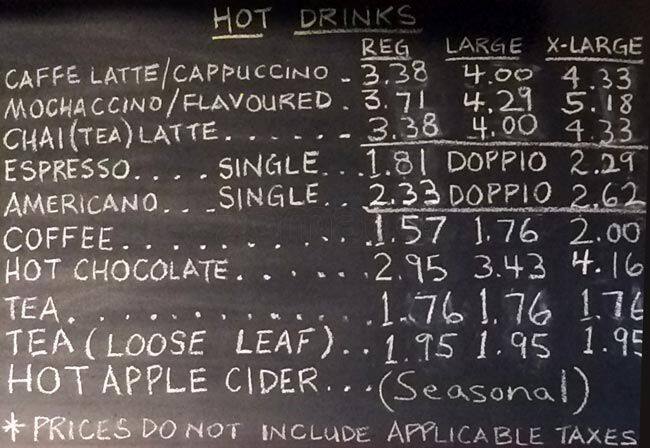 HOT DRINKS
REG LARGE X-LARGE
CAFFE LATTE/CAPPUCCINO - 3.38 4.00 4.33
MOCHACCINO/FLAVOURED . 3.71 4.29 5.18
CHAI(TEA)LATTE...... 3.38 4.00 4.33
ESPRESSO.... SINGLE... 1.81 DOPPIO 2.29
AMERICANO... SINGLE... 2.33 DOPPIO 2.62
COFFEE........... 1.57 1.76 2.00
HOT CHOCOLATE...... 2.95 3.43 4.16
TEA............. 1.76 1.76 1.76
TEA (LOOSE LEAF)... 1.95 1.95 1.95
HOT APPLE CIDER... (Seasonal)
* PRICES DO NOT INCLUDE APPLICABLE TAXES